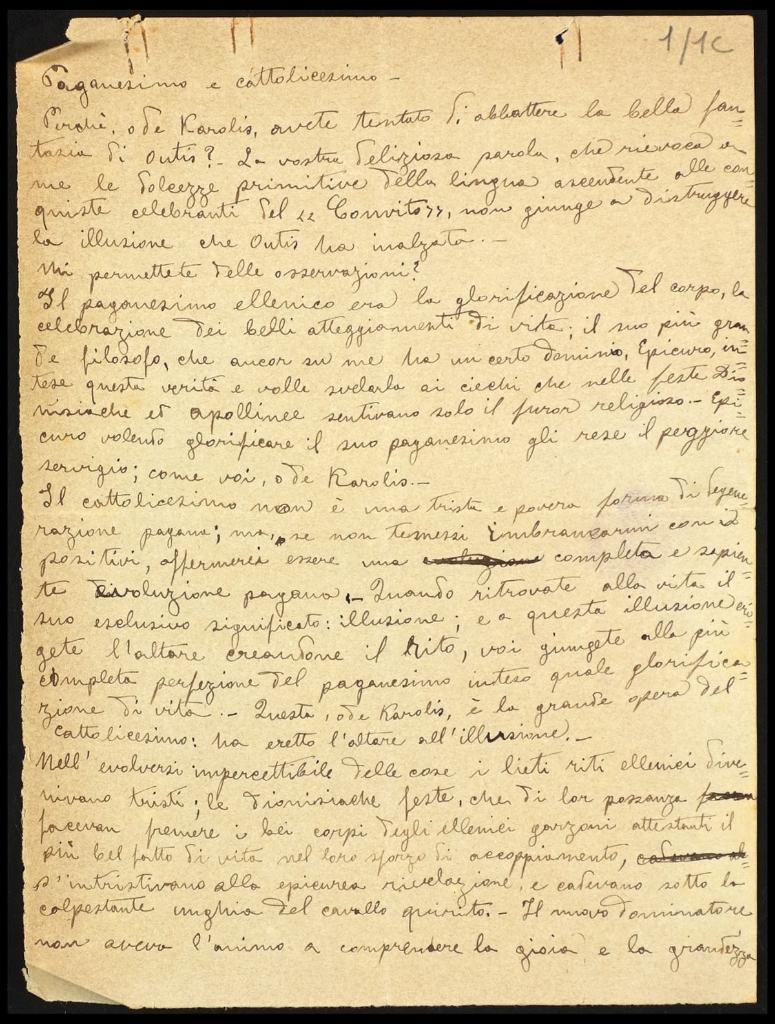 1/1c
Paganesimo e cattolicesimo -
Perchè, o de Karolis, avete tentato di abbattere la bella fan=
tasia di Outis? - La vostra deliziosa parola, che rievoca a
me le dolcezze primitive della lingua ascendente alle con=
quiste celebranti del "Convito", non giunge a distruggere
la illusione che Outis ha inalzata. -
Mi permettete delle osservazioni?
Il paganesimo ellenico era la glorificazione del corpo, la
celebrazione dei belli atteggiamenti di vita; il suo più gran
de filosofo, che ancor su me ha un certo dominio, Epicuro, in=
tese questa verità e volle svelarla ai ciechi che nelle feste Dio=
nisiache ed apollinee sentivano solo il furor religioso. - Epi=
curo volendo glorificare il suo paganesimo gli rese il peggiore
servigio; come voi, o de Karolis. -
Il cattolicesimo non è una trista e povera forma di degene=
razione pagana; ma, se non temessi imbrancarmi con i
positivi, affermerei essere una completa e sapien=
te evoluzione pagana. - Quando ritrovate alla vita il
suo esclusivo significato: illusione; e a questa illusione eri=
gete l'altare creandone il rito, voi giungete alla più
completa perfezione del paganesimo inteso quale glorifica=
zione di vita. - Questa, o de Karolis, è la grande opera del
cattolicesimo: ha eretto l'altare all'illusione. -
Nell'evolversi impercettibile delle cose i lieti riti ellenici dive=
nivano tristi; le dionisiache feste, che di lor possanza
facevan fremere i bei corpi degli ellenici garzoni attestanti il
più bel fatto di vita nel loro sforzo di accoppiamento,
s'intristivano alla epicurea rivelazione, e cadevano sotto la
calpestante unghia del cavallo quirito. - Il nuovo dominatore
non aveva l'animo a comprendere la gioia e la grandezza